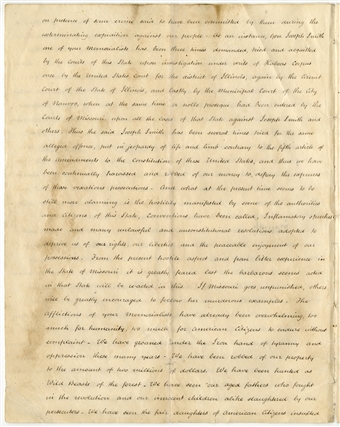 on pretence of some crime said to have been committed by them during the
exterminating expedition against our people. As an instance, Gen. Joseph Smith
one of your Memorialists has been three times demanded, tried and acquitted
by the Courts of this State upon investigation under writs of Habeas Corpus
once by the United States Court for the district of Illinois, again by the Circuit
Court of the State of Illinois, and lastly by the Municipal Court of the City
of Nauvoo, when at the same time a nolle prosequi had been entered by the
Courts of Missouri upon all the cases of that State against Joseph Smith and
others. Thus the said Joseph Smith has been several times tried for the same
alleged offence, put in jeopardy of life and limb contrary to the fifth article of
the amendments to the Constitution of these United States, and thus we have
been continually harassed and robbed of our money to defray the expenses
of these vexatious prosecutions. And what at the present time seems to be
still more alarming is the hostility manifested by some of the authorities
and citizens of this State, Conventions have been called, Inflammatory speeches
made and many unlawful and unconstitutional resolutions adopted to
deprive us of our rights, our liberties and the peaceable enjoyment of our
possessions. From the present hostile aspect and from bitter experience in
the State of Missouri it is greatly feared lest the barbarous scenes acted
in that State will be reacted in this. If Missouri goes unpunished, others
will be greatly encouraged to follow her murderous examples. The
afflictions of your Memorialists have already been overwhelming, too
much for humanity, too much for American Citizens to endure without
complaint. We have groaned under the Iron hand of tyranny and
oppression these many years. We have been robbed of our property
to the amount of two millions of dollars. We have been hunted as
Wild Beasts of the forest. We have seen our aged fathers who fought
in the revolution and our innocent children alike slaughtered by our
persecutors. We have seen the fair daughters of American Citizens insulted